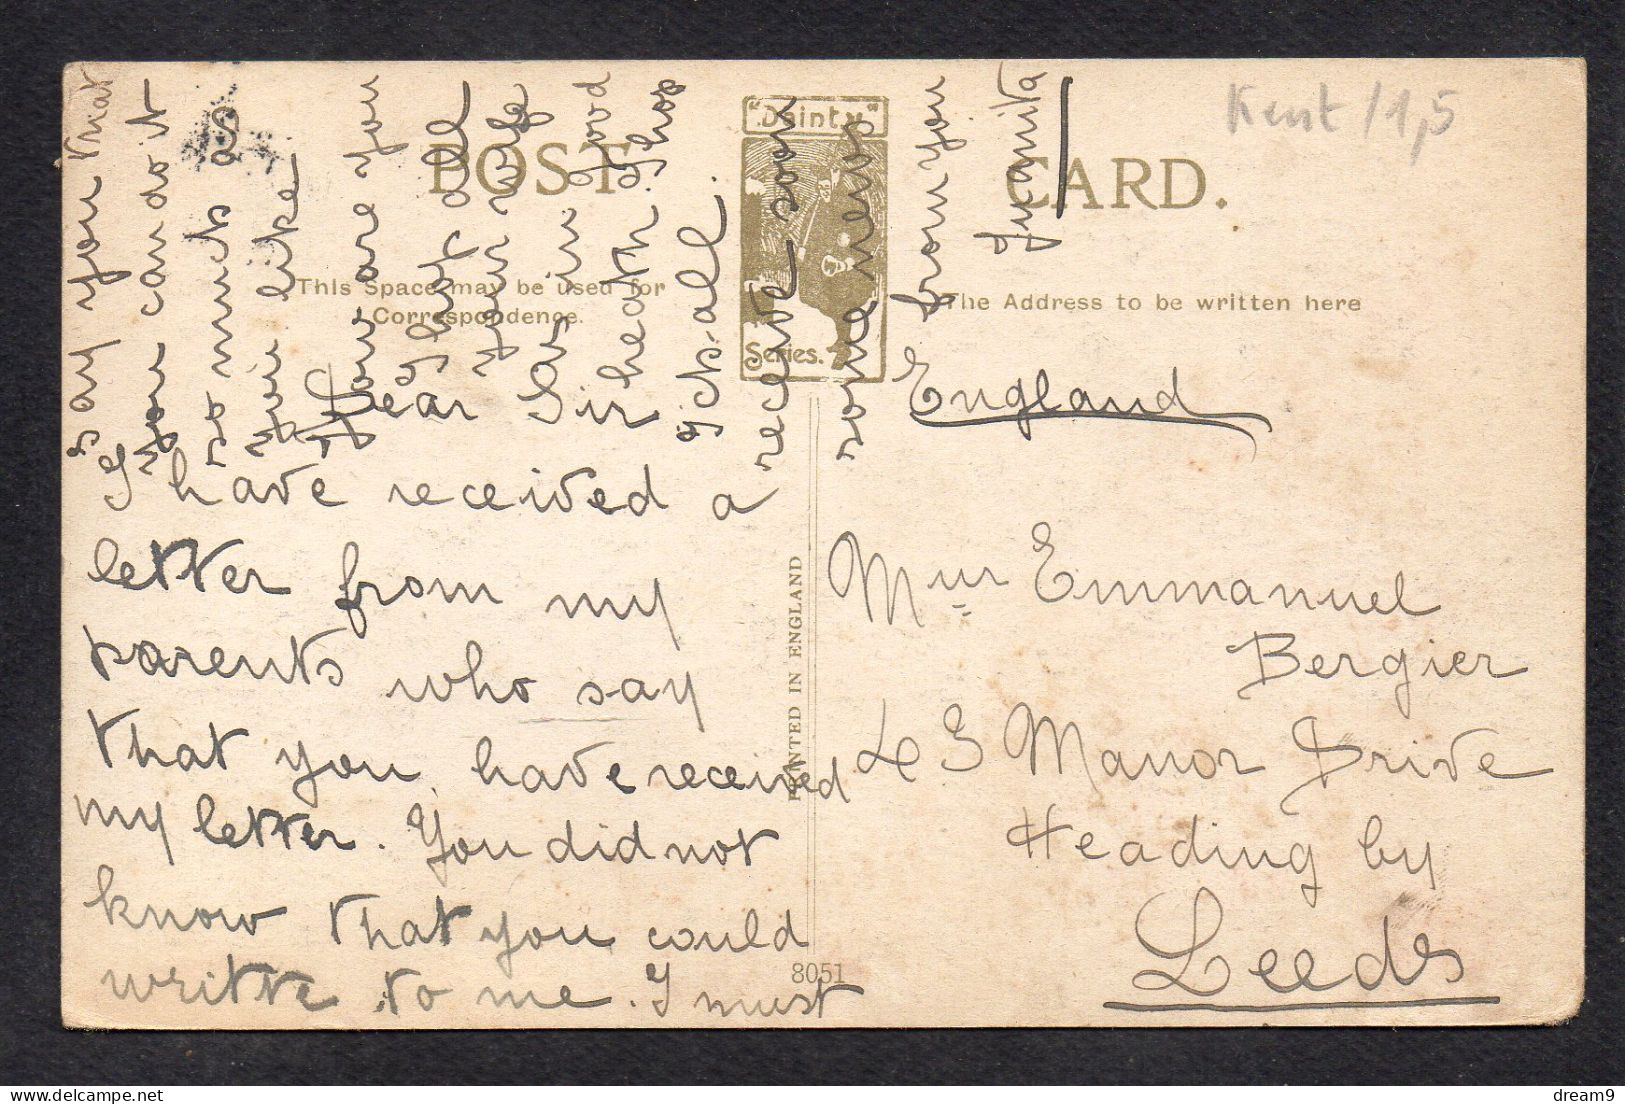 POST CARD.
"Dainty"
Series.
This Space may be used for
Correspondence.
The Address to be written here
Kent /1,5
Dear Sir
I have received a
letter from my
parents who say
that you have received
my letter. You did not
know that you could
writte to me. I must
say you that
you can do it
so much as
you like
How are you
that all
your wife
in good
heath. Thos
its all.
receive soon
some news
from you
Juanita
England
Mur Emmanuel
Bergier
43 Manor Drive
Heading by
Leeds
PRINTED IN ENGLAND
8051
delcampe.net
dream9